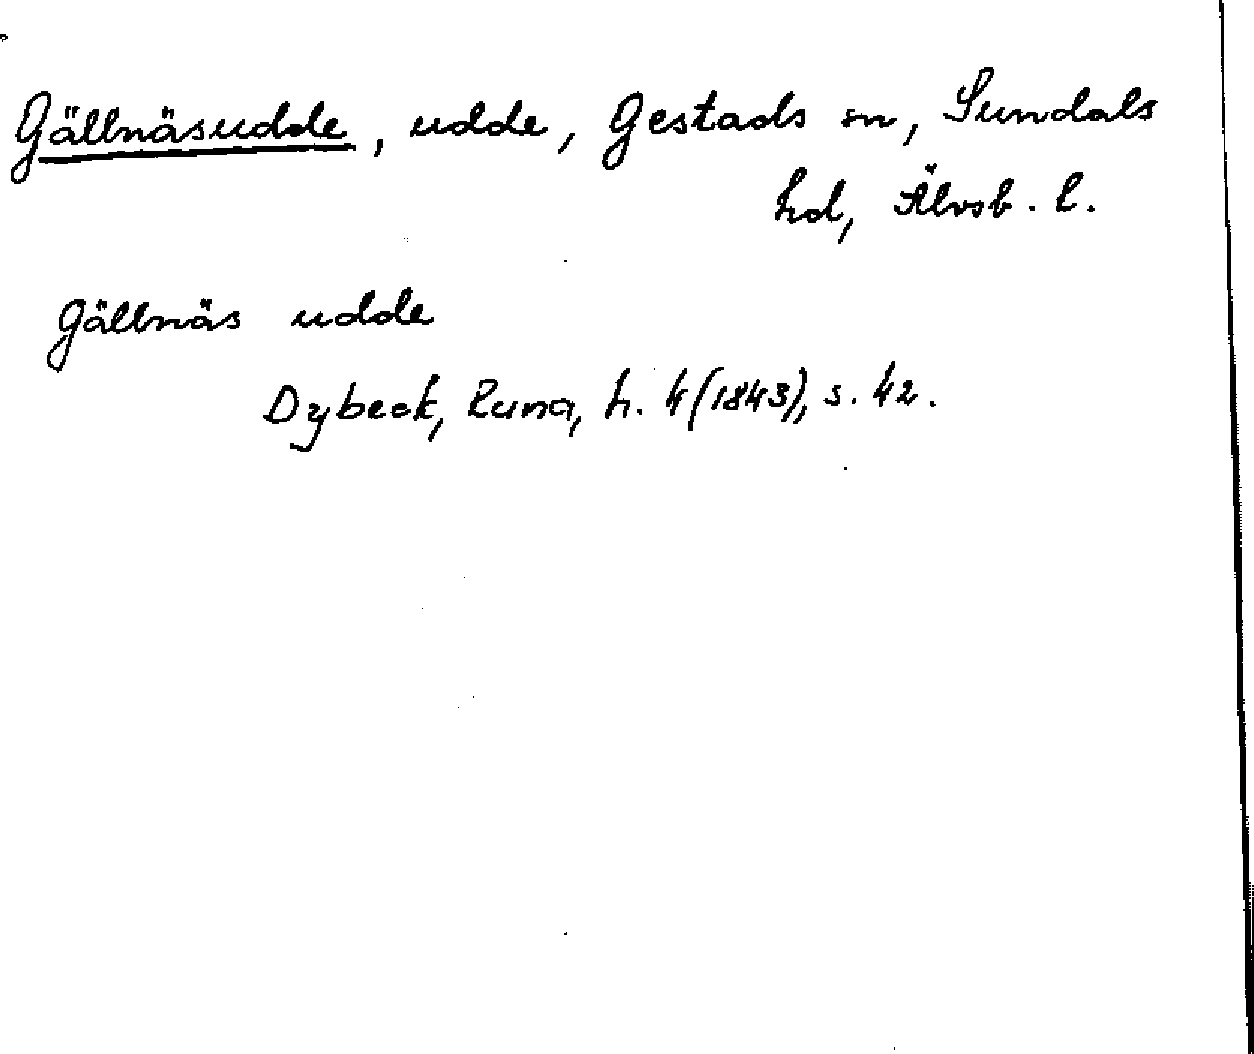 Gällnäsudde, udde, Gestads sn, Sundals
hd, Älvsb. l.
Gällnäs udde
Dybeck, Runa, h. 4 (1843), s. 42.